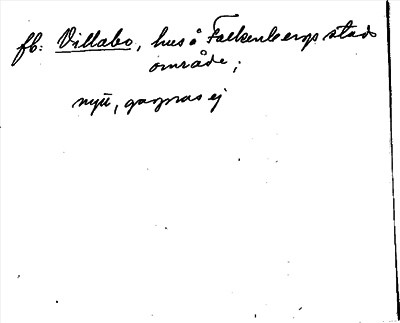 fb: Villabo, hus å Falkenbergs stads
område;
nytt, gagnas ej